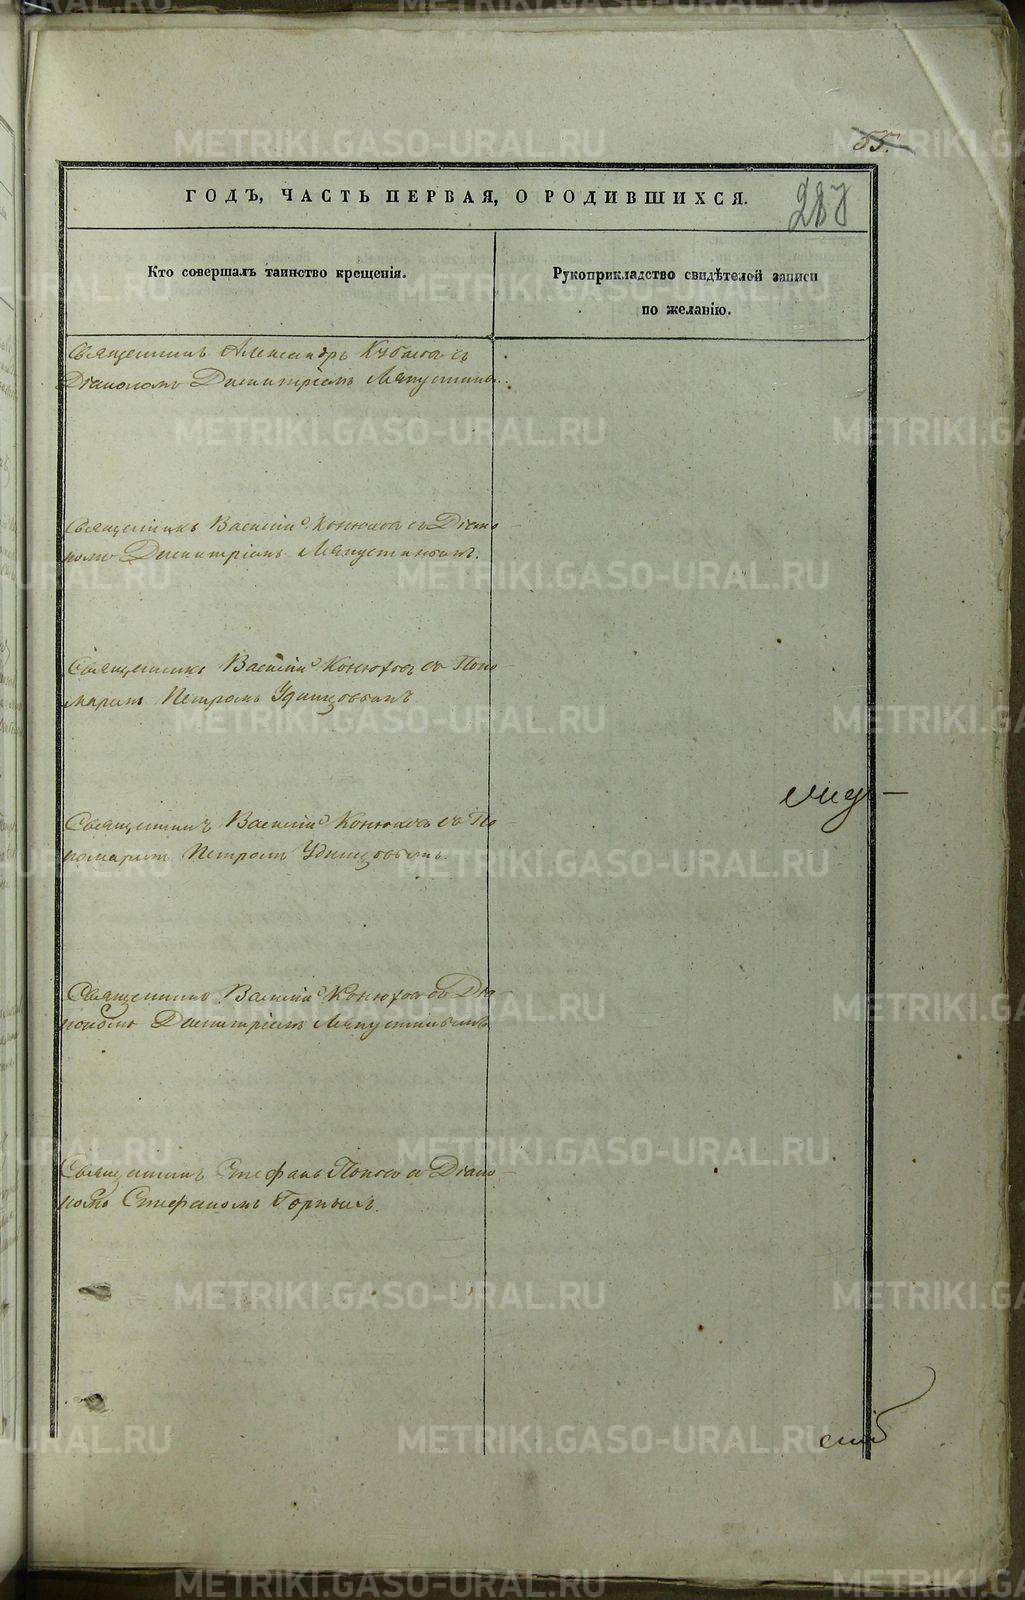 55.
ГОДЪ, ЧАСТЬ ПЕРВАЯ, О РОДИВШИХСЯ.
287
Кто совершалъ таинство крещенія.
Рукоприкладство свидѣтелей записи
по желанію.
Священникъ Александръ съ
Діакономъ Димитріемъ Ляпустинъ..
Священникъ Василій Конюховъ съ Діако
номъ Димитріемъ Ляпустинымъ.
Священникъ Василій Конюховъ съ Поно
маремъ Петромъ Удинцовымъ
Священникъ Василій Конюховъ съ По
номаремъ Петромъ Удинцовымъ.
Священникъ Василій Конюховъ съ Діа
кономъ Димитріемъ Ляпустинымъ
Священникъ Стефанъ Поповъ съ Діако
номъ Стефаномъ Горныхъ.
METRIKI.GASO-URAL.RU